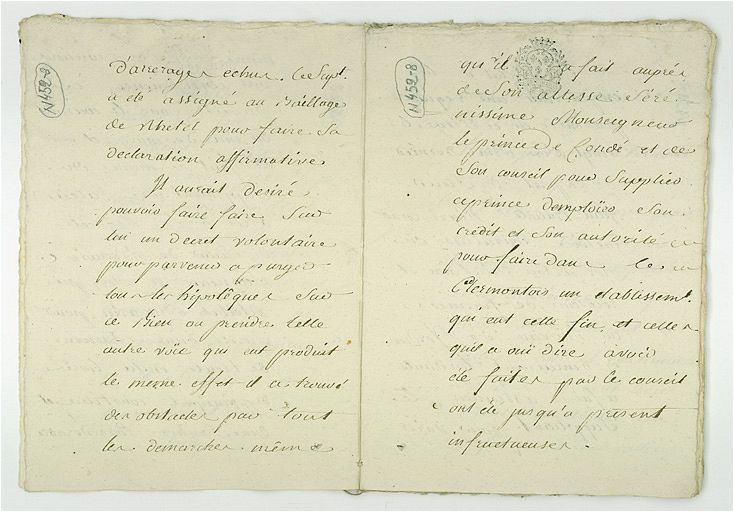 N459-8
d'arrerages echus. Le Supt.
a été assigné au Bailliage
de Rhetel pour faire sa
declaration affirmative
Il auroit desiré
pouvoir faire faire Sur
lui un decret volontaire
pour parvenir a purger
tous les hipotêques Sur
ce Bien ou prendre telle
autre voïe qui eut produit
le meme effet il a trouvé
des obstacles par tout
les demarches même
N459-8
qu'il a fait auprés
de Son altesse Séré
nissime Monseigneur
le prince de Condé et de
Son conseil pour Supplier
ce prince d'emploïer Son
credit et Son autorité
pour faire dans le
Clermontois un etablissemt.
qui eut cette fin, et celles
qu'il a oüi dire avoir
été faites par le conseil
ont été jusqu'a présent
infructueuses.